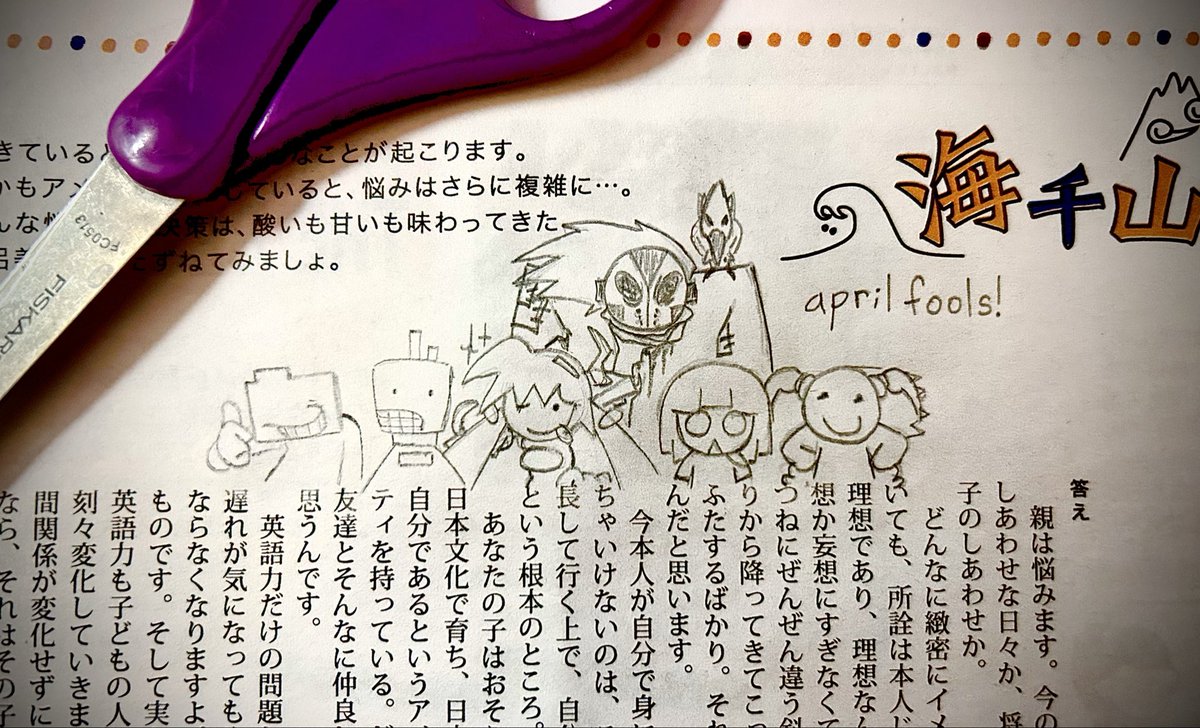 きていると なことが起こります。
かもアン していると、悩みはさらに複雑に…。
んな 決策は、酸いも甘いも味わってきた
ずねてみましょ。
海千山
april fools!
答え
親は悩みます。今の
しあわせな日々か、将
子のしあわせか。
どんなに緻密にイメ
いても、所詮は本人じ
理想であり、理想なん
想か妄想にすぎなくて
つねにぜんぜん違う斜
りから降ってきてこっ
ふたするばかり。それ
んだと思います。
今本人が自分で身に
ちゃいけないのは、
長して行く上で、自
という根本のところ。
あなたの子はおそ
日本文化で育ち、日
自分であるというア
ティを持っている。
友達とそんなに仲良
思うんです。
英語力だけの問題
遅れが気になっても
ならなくなりますよ
ものです。そして実
英語力も子どもの人
刻々変化していきま
間関係が変化せずに
なら、それはその子
FC0513
FISKAR